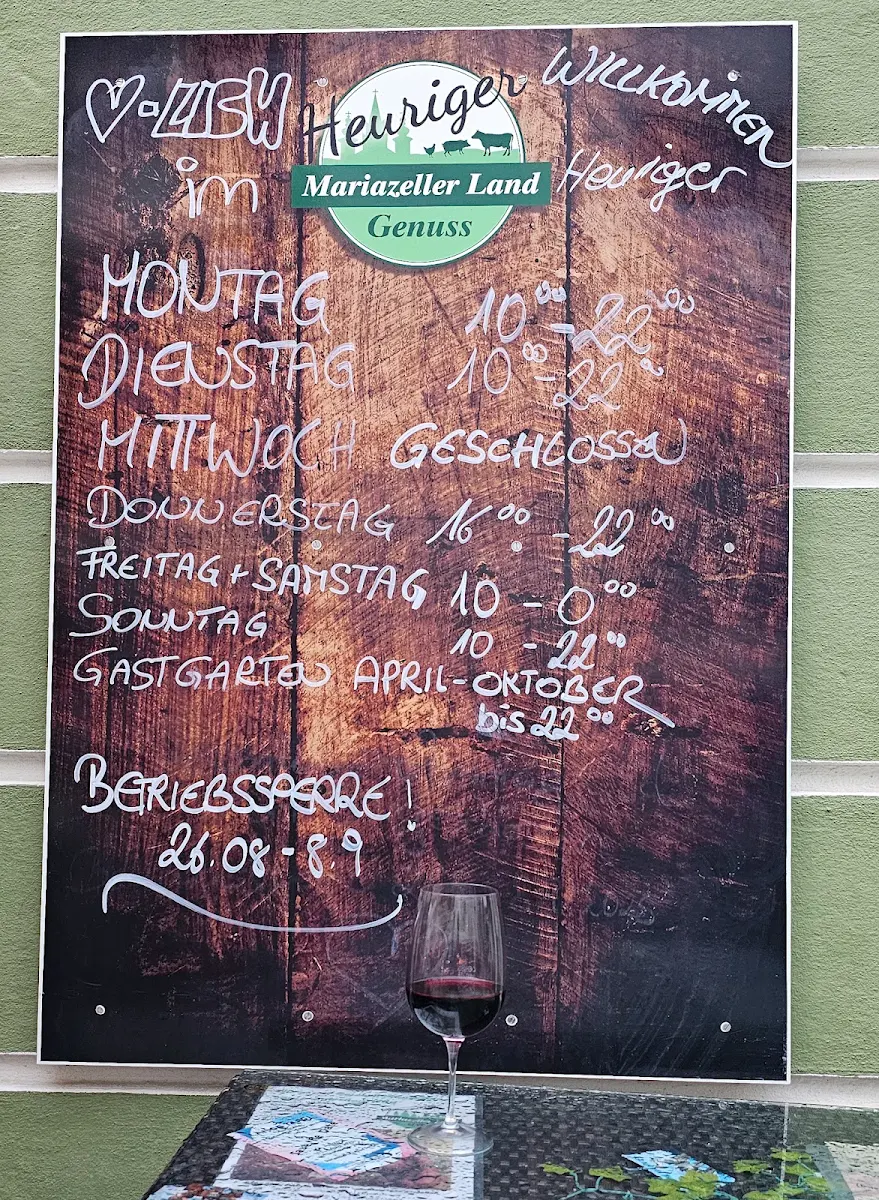 ♡-LICH WILLKOMMEN
im Heuriger
Heuriger
Mariazeller Land
Genuss
MONTAG 10⁰⁰-22⁰⁰
DIENSTAG 10⁰⁰-22⁰
MITTWOCH GESCHLOSSEN
DONNERSTAG 16⁰⁰-22⁰⁰
FREITAG + SAMSTAG 10-0⁰⁰
SONNTAG 10-22⁰⁰
GASTGARTEN APRIL-OKTOBER
bis 22⁰⁰
BETRIEBSSPERRE!
26.08-8.9